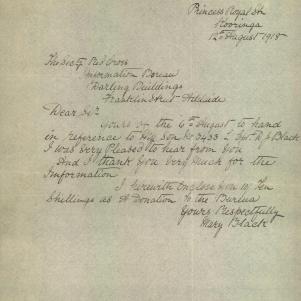 Princess Royal Stn
Kooringa
12th August 1918
The Secty Red Cross
Information Bureau
Darling Buildings
Franklin Street Adelaide
Dear Sir
Yours of the 6th August to hand
in reference to My son No 3433 L Cpl R J Black
I was Very Pleased to hear from You
And I thank You Very Much for the
Information
I Herewith Enclose You 10/ Ten
Shillings as A Donation to the Bureau
Yours Respectfully
Mary Black